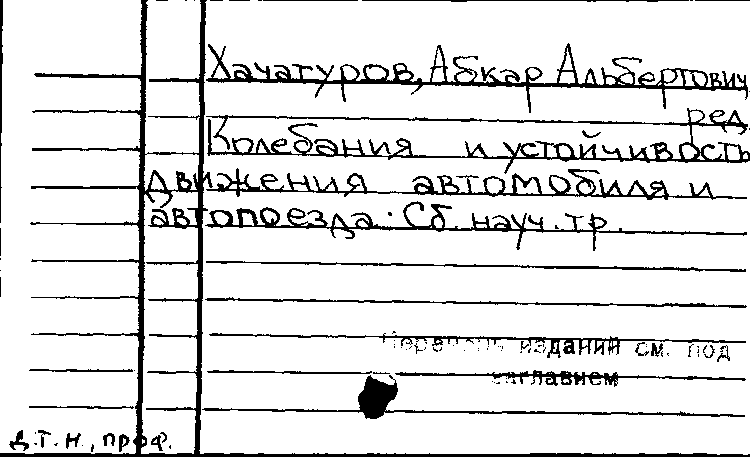 Хачатуров, Абкар Альбертович,
ред.
Колебания и устойчивость
движения автомобиля и
автопоезда: Сб. науч. тр.
Перечень изданий см. под
заглавием
д.т.н., проф.